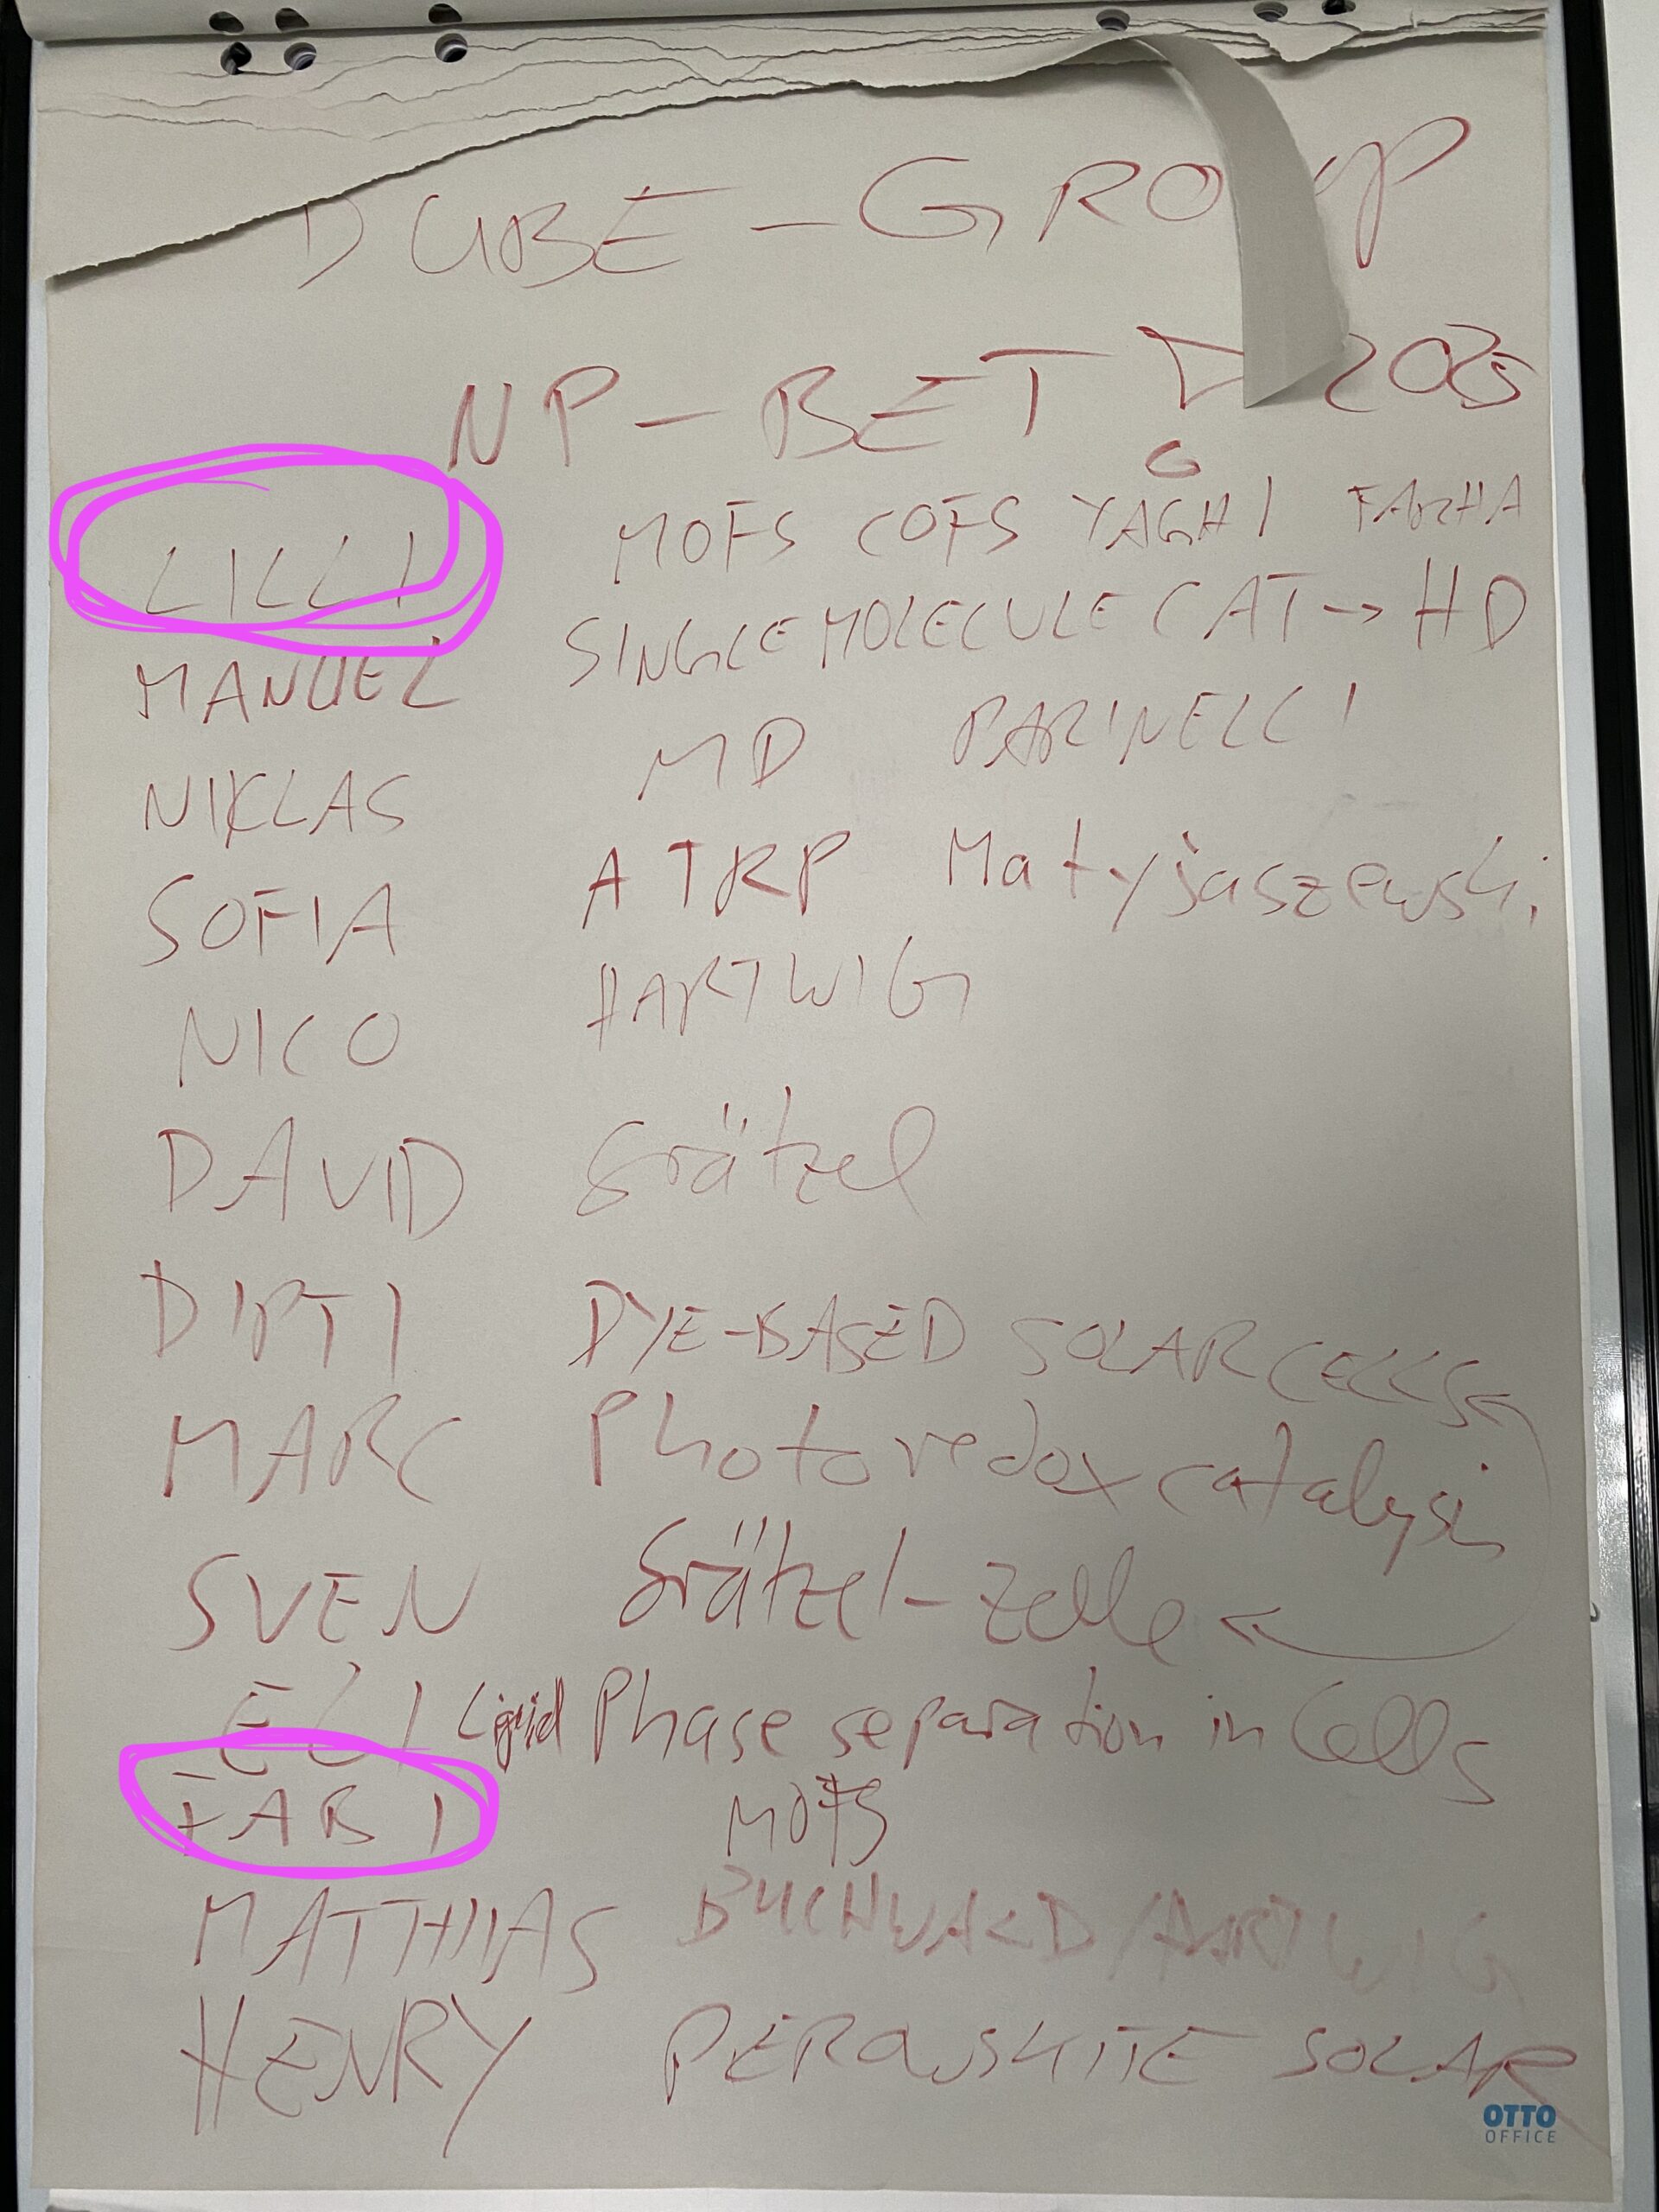 DUBE-GROUP
NP-BET 2025
LILLI MOFS COFS YAGHI FARHA
MANUEL SINGLE MOLECULE CAT → HD
NIKLAS MD PARINELLI
SOFIA ATRP Matyjaszewski
NICO HARTWIG
DAVID Grätzel
DIPTI DYE-BASED SOLAR CELLS
MARC Photoredox catalysis
SVEN Grätzel-Zelle
ELI Liquid Phase separation in Cells
FABI MOFS
MATTHIAS BUCHWALD/HARTWIG
HENRY PEROWSKITE SOLAR
OTTO
OFFICE